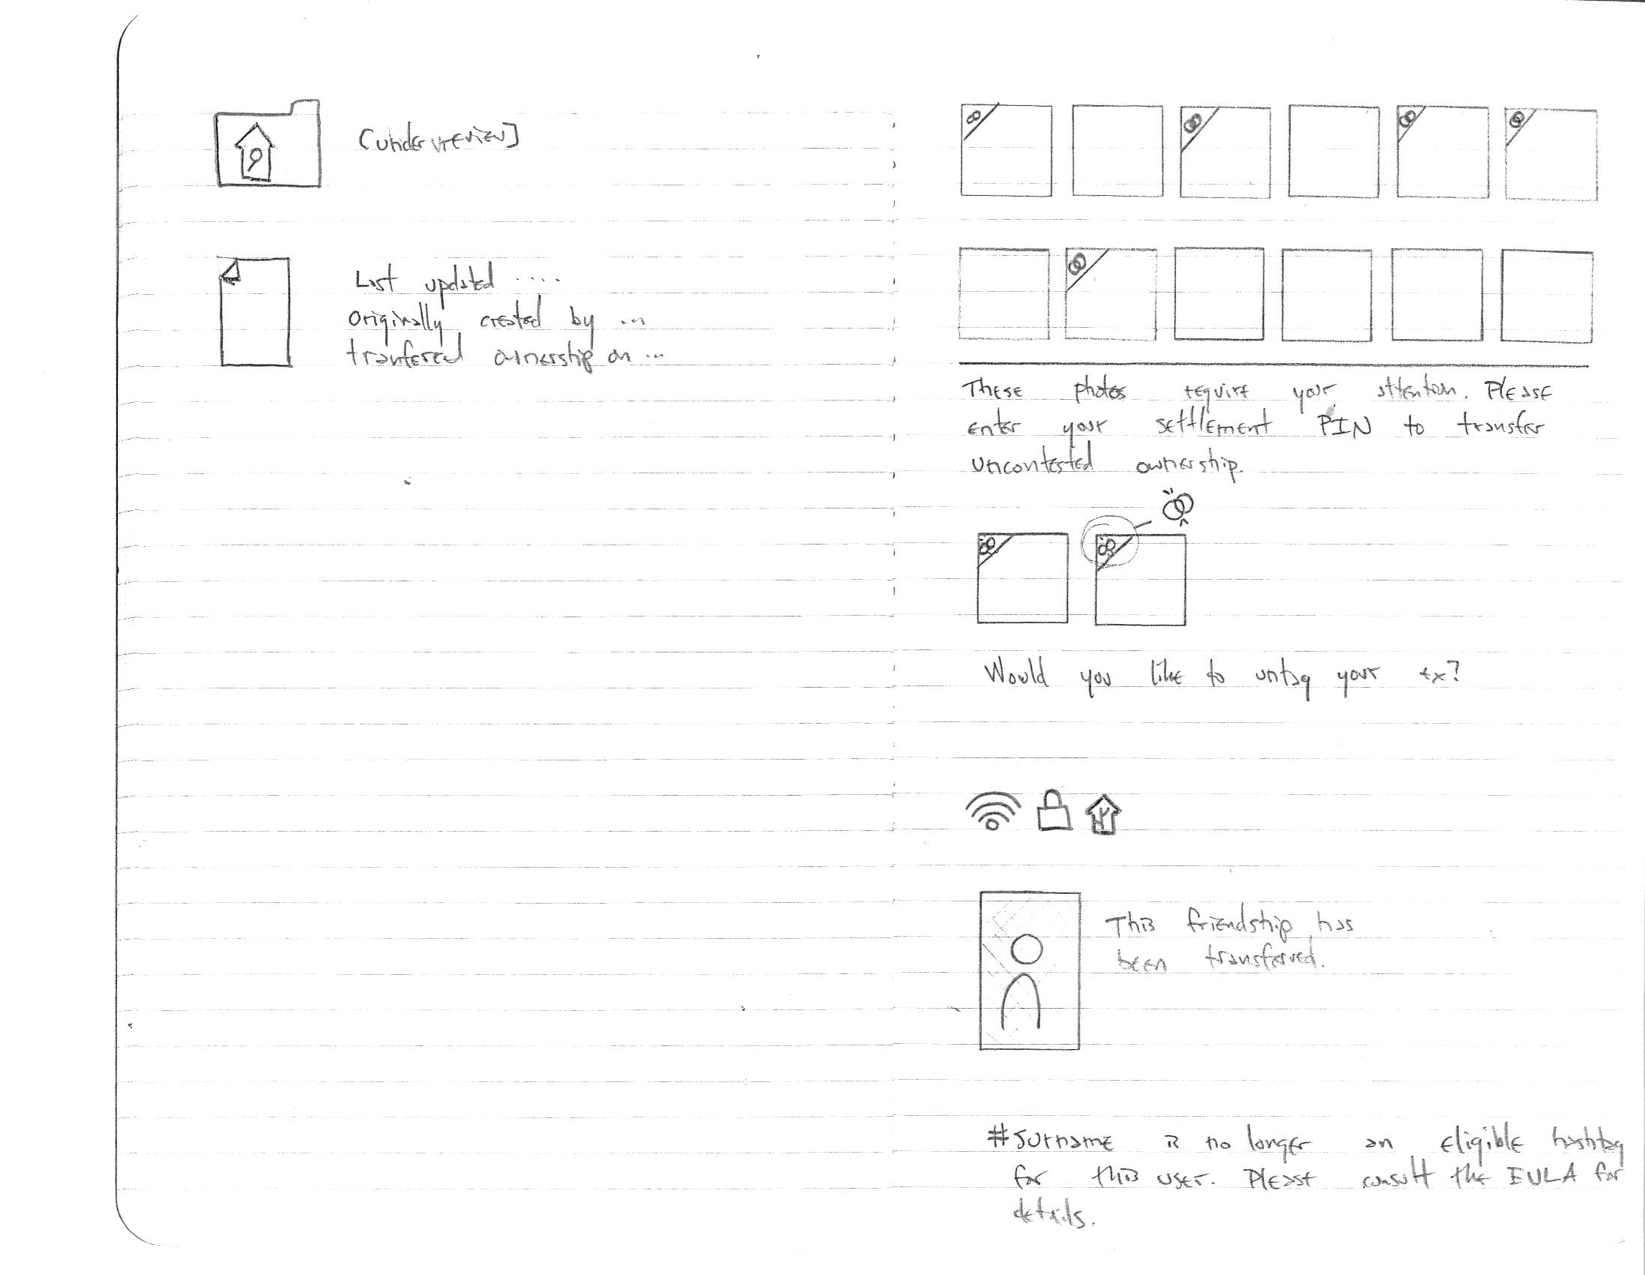 (under review]
Last updated ....
originally created by ...
tranfered ownership on ...
These photos require your attention. Please
enter your settlement PIN to transfer
uncontested ownership.
Would you like to untag your ex?
This friendship has
been transferred.
#surname is no longer an eligible hashtag
for this user. Please consult the EULA for
details.